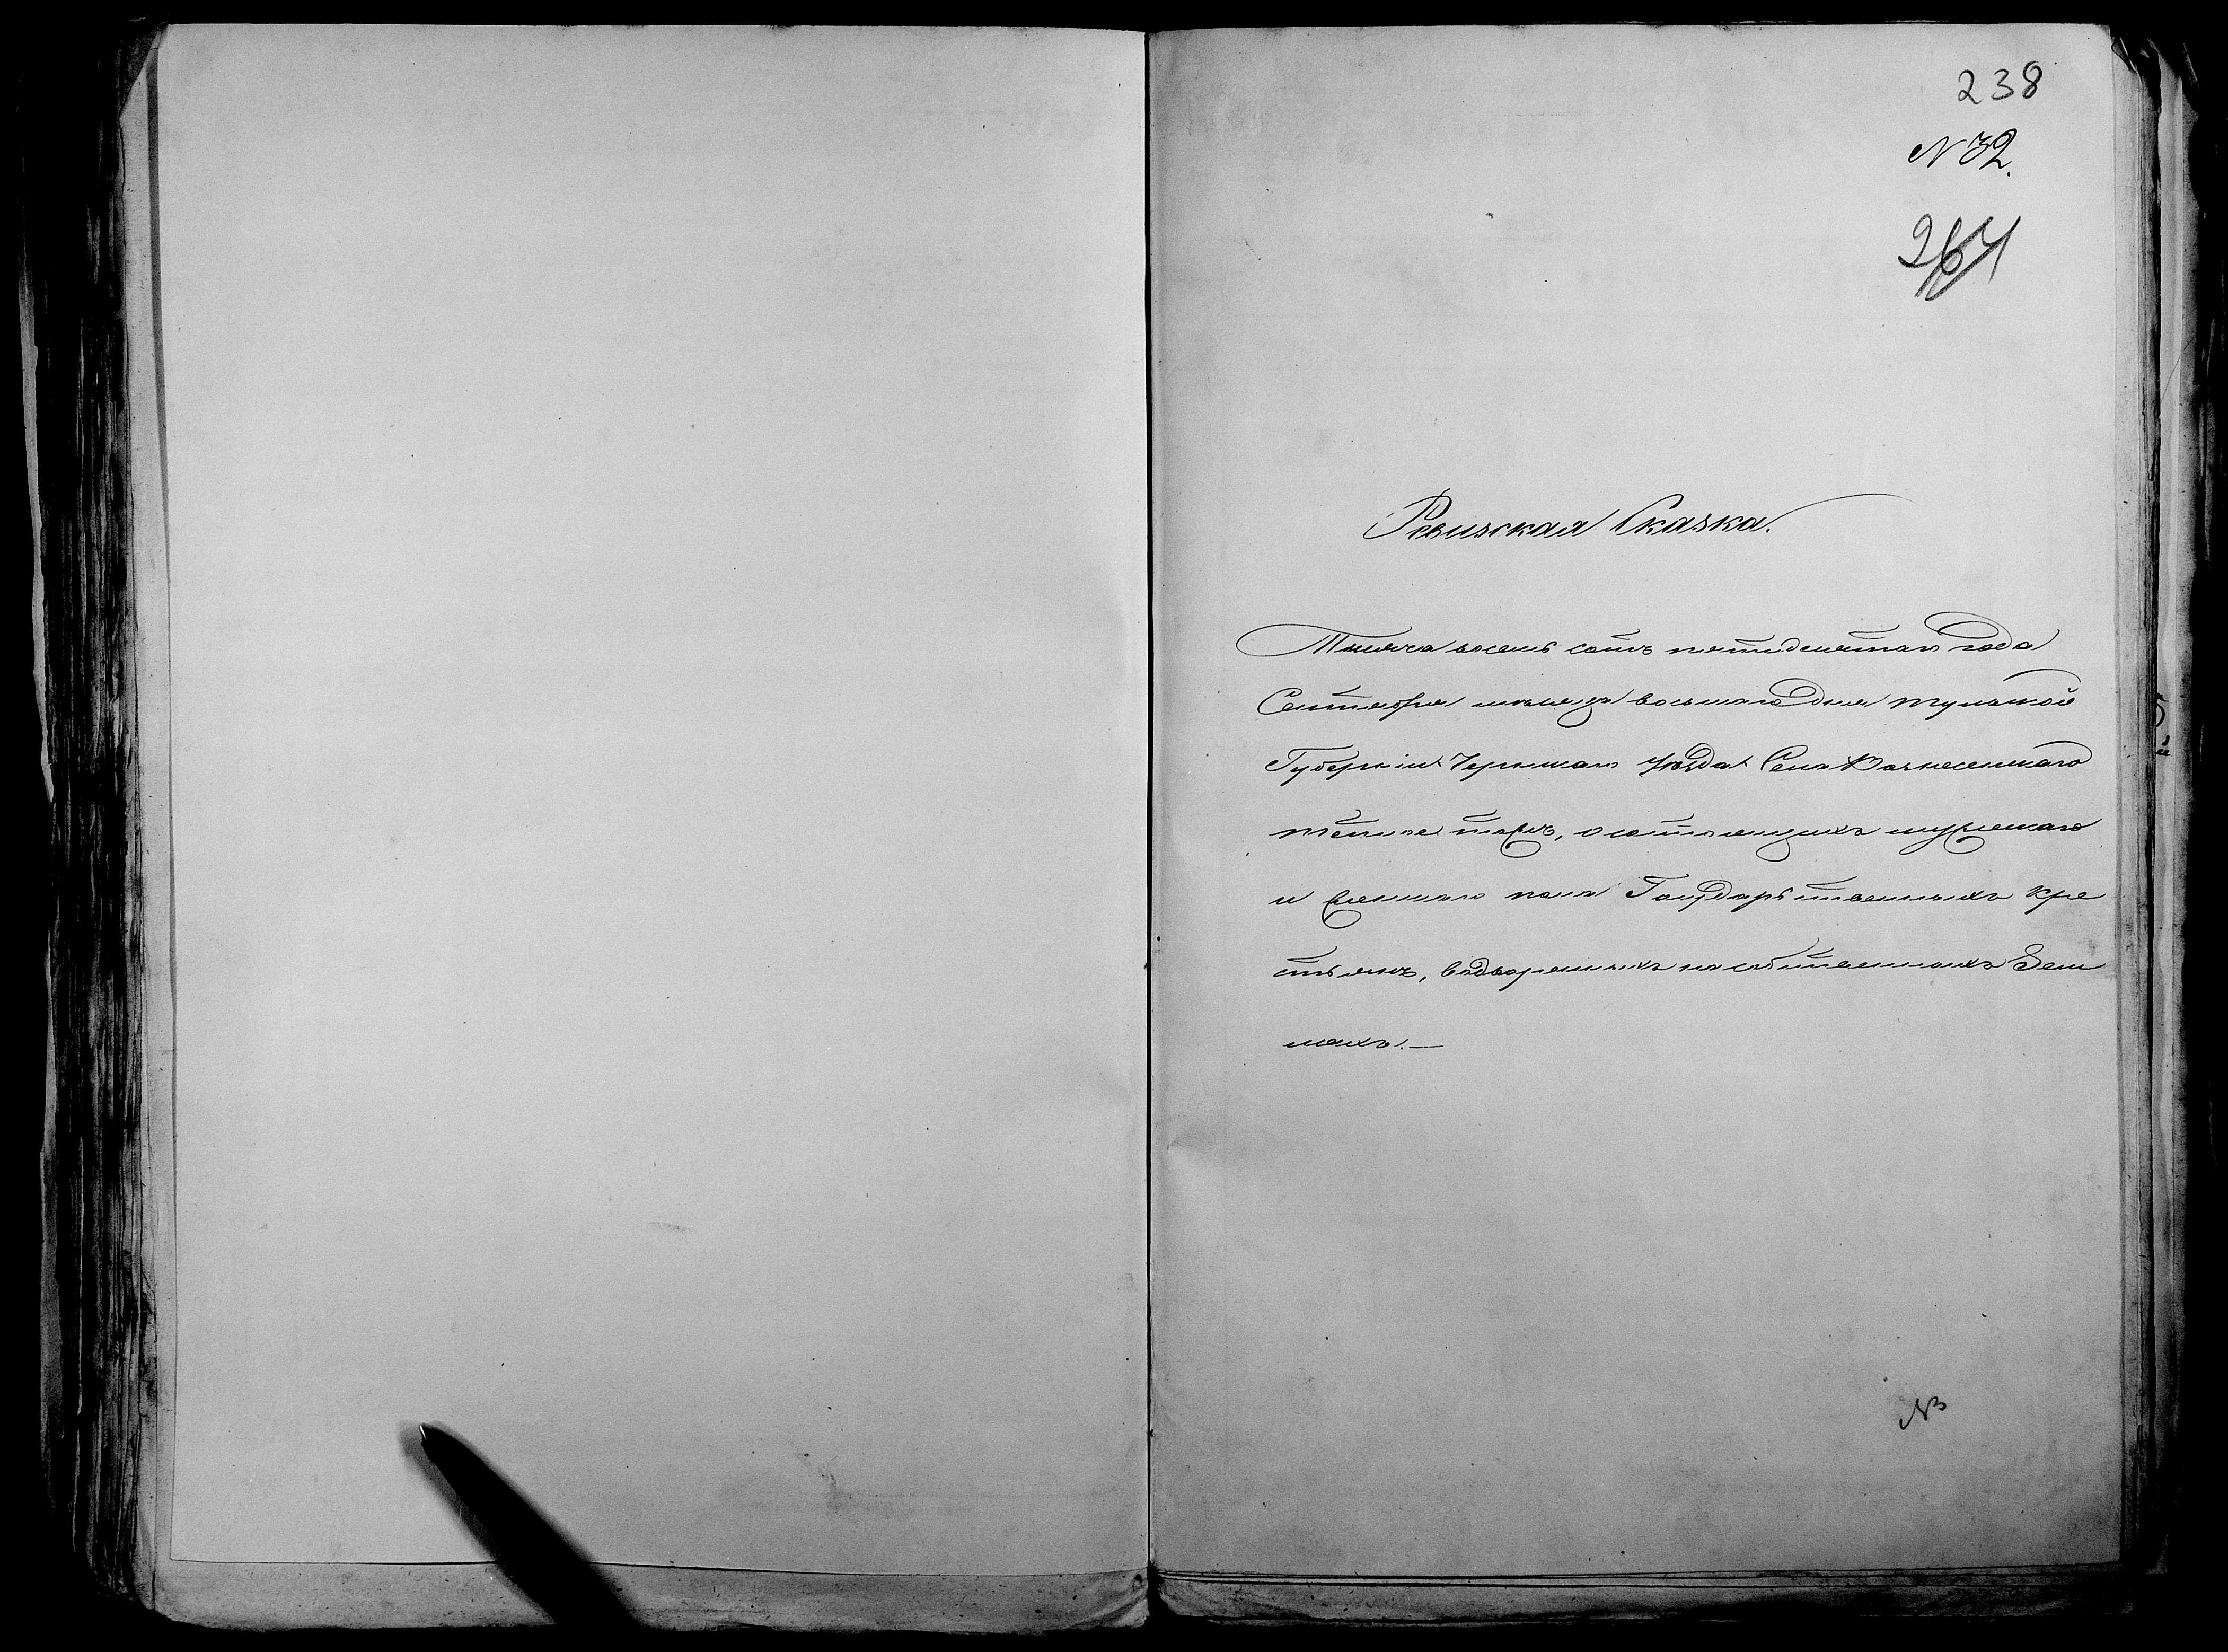 238
N 32.
264
Ревизская Сказка.
Тысяча восемь сотъ пятидесятаго года
Сентября месяца восьмаго дня Тульской
Губерніи Чернскаго уѣзда Села Вознесенскаго
тожъ, о состоящихъ мужескаго
и женскаго пола Государственныхъ кре
стьянъ, водворенныхъ на собственныхъ Зем
ляхъ.—
№